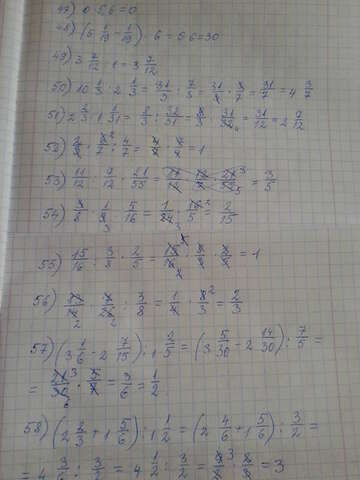 47) 0·5,6=0
48) (5 1/19 - 1/19) · 6 = 5·6=30
49) 3 7/12 · 1 = 3 7/12
50) 10 1/3 : 2 1/3 = 31/3 : 7/3 = 31/3 · 3/7 = 31/7 = 4 3/7
51) 2 2/3 : 1 1/31 = 8/3 : 32/31 = 8/3 · 31/32 4 = 31/12 = 2 7/12
52) 2/8 · 2/7 : 4/7 = 4/7 · 7/4 = 1
53) 11/12 : 9/12 · 21/55 = 3/5
54) 3/8 · 1/9 3 : 5/16 = 1/24 · 16/5 = 2/15
55) 15/16 : 3/8 · 2/5 = 15/16 2 · 8/3 · 2/5 = 1
56) : 3/8 = 1/4 · 8/3 2 = 2/3
57) (3 1/6 - 2 7/15) : 1 2/5 = (3 5/30 - 2 14/30) : 7/5 =
= 21/30 3 6 · 5/7 = 3/6 = 1/2
58) (2 2/3 + 1 5/6) : 1 1/2 = (2 4/6 + 1 5/6) : 3/2 =
= 4 3/6 : 3/2 = 4 1/2 : 3/2 = 9/2 3 · 2/3 = 3